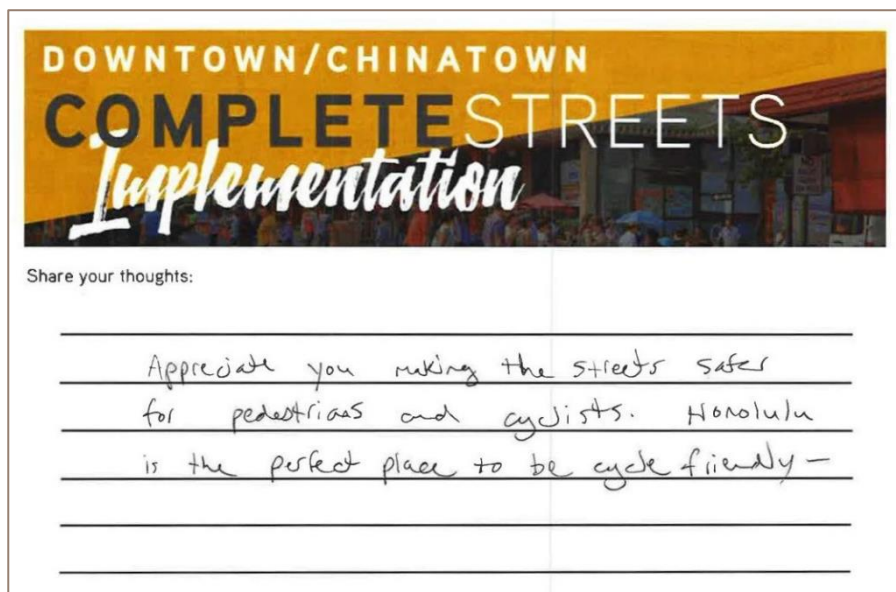 DOWNTOWN/CHINATOWN
COMPLETESTREETS
Implementation
Share your thoughts:
Appreciate you making the streets safer
for pedestrians and cyclists. Honolulu
is the perfect place to be cycle friendly —